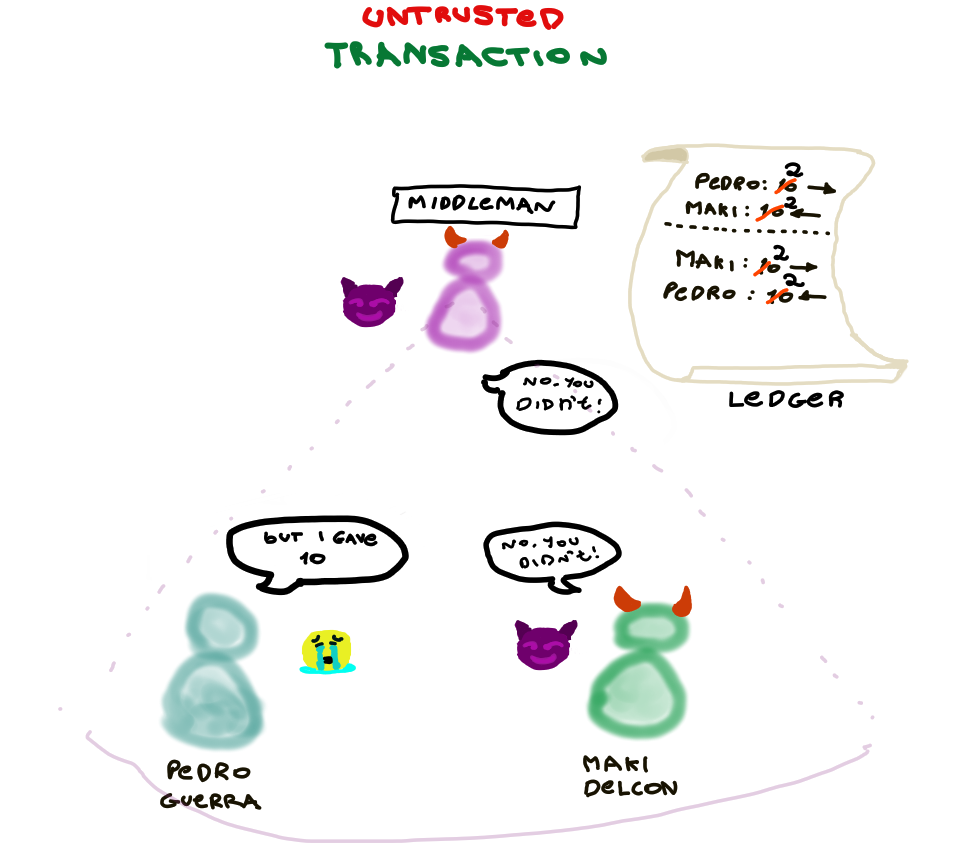 UNTRUSTED
TRANSACTION
MIDDLEMAN
PEDRO: 10 2 →
MAKI: 10 2 ←
MAKI: 10 2 →
PEDRO: 10 2 ←
LEDGER
NO, YOU
DIDN't!
BUT I GAVE
10
NO, YOU
DIDN't!
PEDRO
GUERRA
MAKI
DELCON